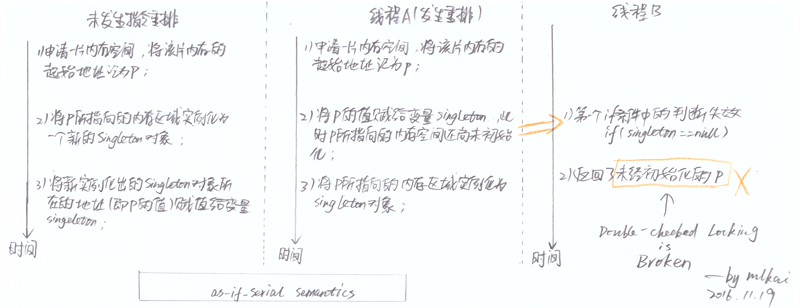 未发生指令重排
1)申请一片内存空间,将该片内存的
起始地址记为P;
2)将P所指向的内存区域实例化为
一个新的Singleton对象;
3)将新实例化出的Singleton对象所
在的地址(即P的值)赋值给变量
singeleton;
时间
线程A(发生重排)
1)申请一片内存空间,将该片内存的
起始地址记为P;
2)将P的值赋给变量singleton,此
时P所指向的内存空间还尚未初始
化;
3)将P所指向的内存区域实例化为
singleton对象;
时间
as-if-serial semantics
线程B
1)第一个if条件中的判断失效
if(singleton==null)
2)返回了未经初始化的P
Double-checked Locking
is
Broken
—by mlkai
2016.11.19
时间